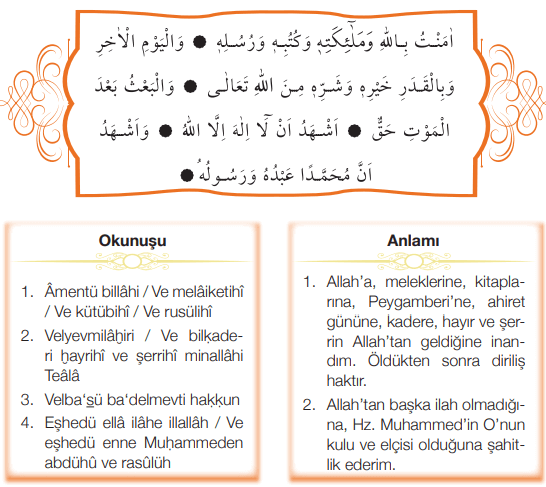 اٰمَنْتُ بِاللهِ وَمَلٰٓئِكَتِه۪ وَكُتُبِه۪ وَرُسُلِه۪ ● وَالْيَوْمِ الْاٰخِرِ
وَبِالْقَدَرِ خَيْرِه۪ وَشَرِّه۪ مِنَ اللهِ تَعَالٰى ● وَالْبَعْثُ بَعْدَ
الْمَوْتِ حَقٌّ ● اَشْهَدُ اَنْ لَٓا اِلٰهَ اِلَّا اللهُ ● وَاَشْهَدُ
اَنَّ مُحَمَّدًا عَبْدُهُ وَرَسُولُهُ ●
Okunuşu
1. Âmentü billâhi / Ve melâiketihî
/ Ve kütübihî / Ve rusülihî
2. Velyevmilâḫiri / Ve bilḳade-
ri ḫayrihî ve şerrihî minallâhi
Teâlâ
3. Velba‘s̱ü ba‘delmevti haḳḳun
4. Eşhedü ellâ ilâhe illallâh / Ve
eşhedü enne Muḥammeden
abdühû ve rasûlüh
Anlamı
1. Allah’a, meleklerine, kitapla-
rına, Peygamberi’ne, ahiret
gününe, kadere, hayır ve şer-
rin Allah’tan geldiğine inan-
dım. Öldükten sonra diriliş
haktır.
2. Allah’tan başka ilah olmadığı-
na, Hz. Muhammed’in O’nun
kulu ve elçisi olduğuna şahit-
lik ederim.